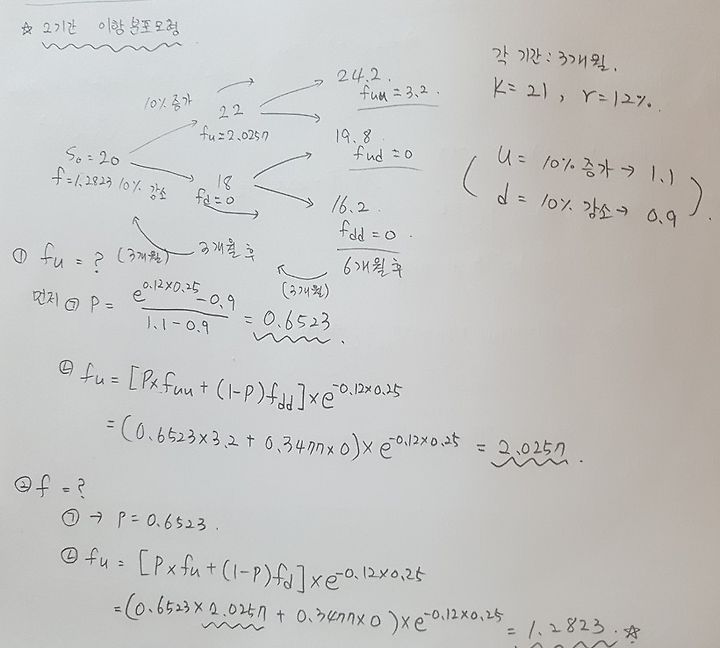 ☆ 2기간 이항분포모형
각 기간: 3개월.
K=21, r=12%.
24.2.
fuu=3.2.
10% 증가
22
fu=2.0257
19.8
fud=0
S₀=20
f=1.2823 10% 감소
18
fd=0
16.2.
fdd=0.
6개월 후
( u = 10% 증가→ 1.1
d = 10% 감소→ 0.9 ).
3개월 후
(3개월)
(3개월)
① fu = ?
먼저 ㉠ P = (e^(0.12×0.25) - 0.9) / (1.1-0.9) = 0.6523.
㉡ fu = [P×fuu + (1-P)fdd]×e^(-0.12×0.25)
= (0.6523×3.2 + 0.3477×0)×e^(-0.12×0.25) = 2.0257.
② f = ?
㉠ → P=0.6523.
㉡ fu = [P×fu + (1-P)fd]×e^(-0.12×0.25)
=(0.6523×2.0257 + 0.3477×0)×e^(-0.12×0.25) = 1.2823.☆